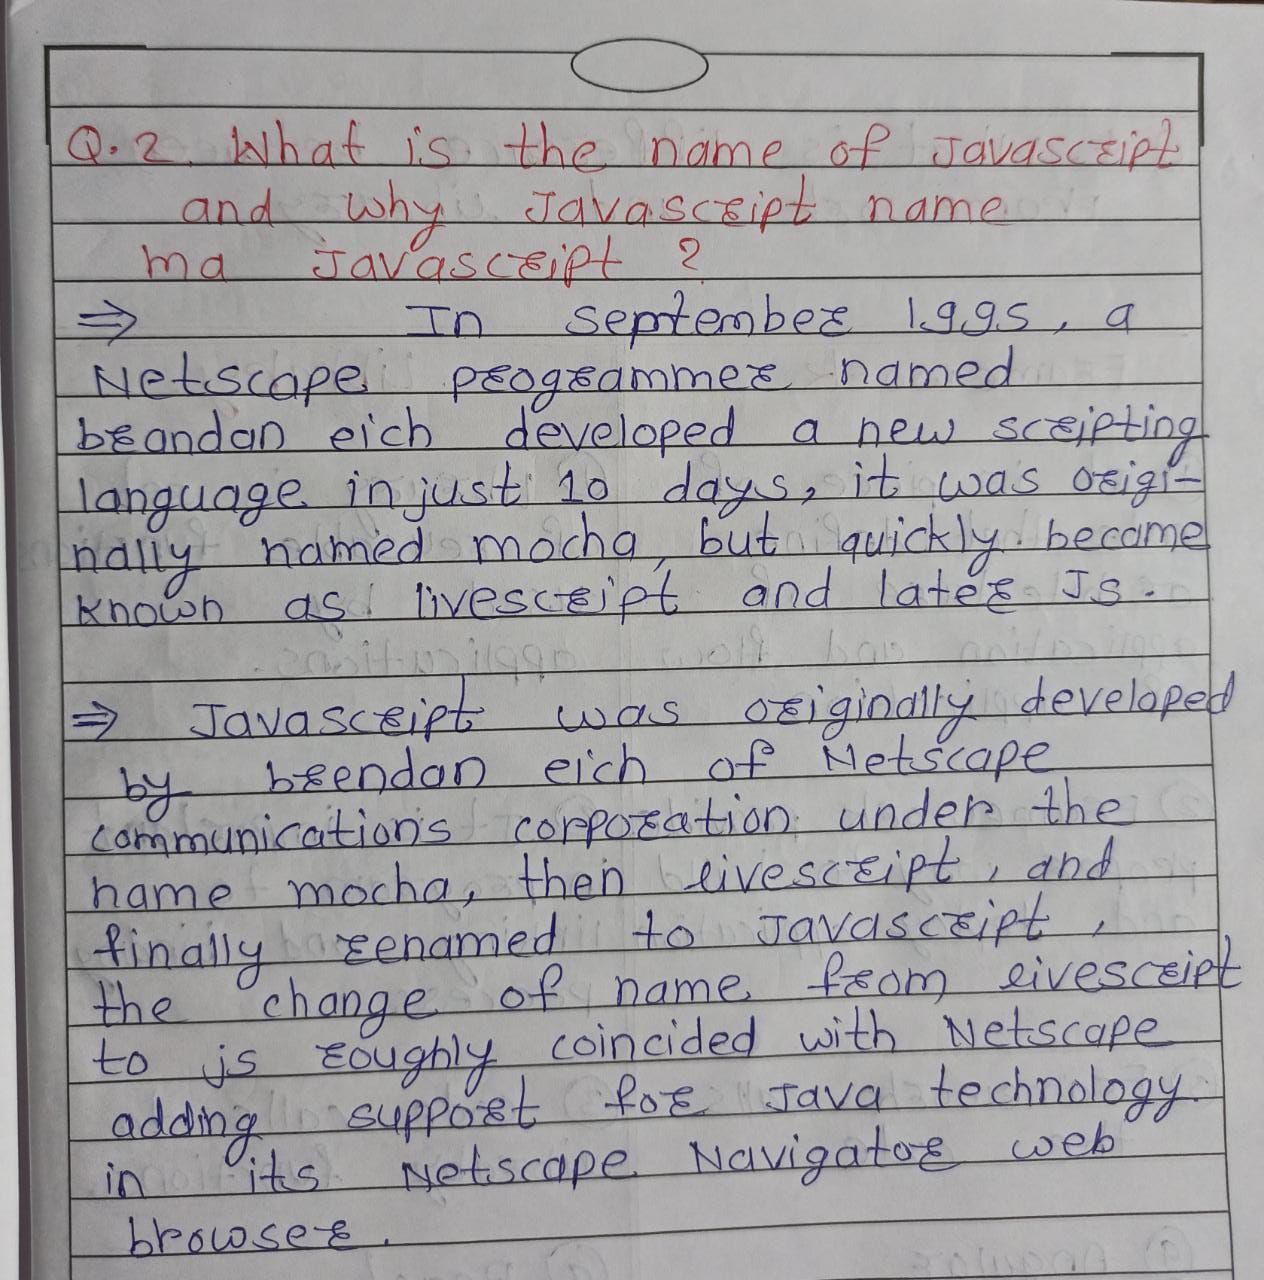 Q.2. What is the name of Javascript
and why Javascript name
ma Javascript ?
⇒ In september 1995, a
Netscape programmer named
brandan eich developed a new scripting
language in just 10 days, it was origi-
nally named mocha, but quickly become
known as livescript and later Js.
⇒ Javascript was originally developed
by brendan eich of Netscape
communications corporation under the
name mocha, then livescript, and
finally renamed to Javascript,
the change of name from livescript
to js roughly coincided with Netscape
adding support for Java technology
in its Netscape Navigator web
browser.